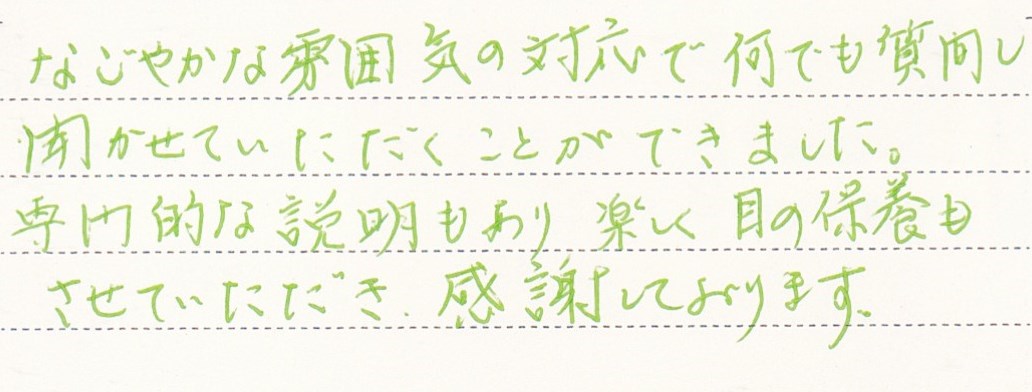 なごやかな雰囲気の対応で何でも質問し
聞かせていただくことができました。
専門的な説明もあり楽しく目の保養も
させていただき、感謝しております。